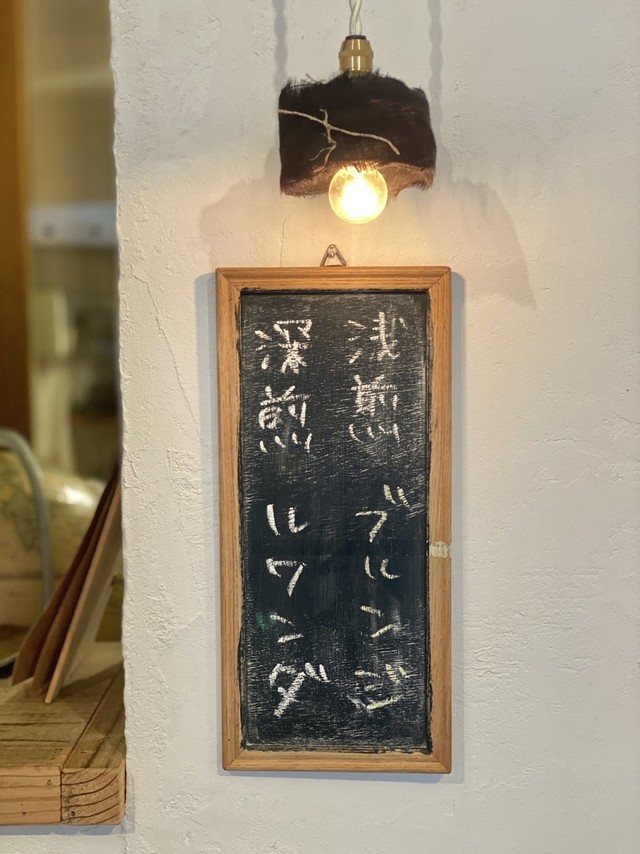 浅煎 ブルンジ
深煎 ルワンダ